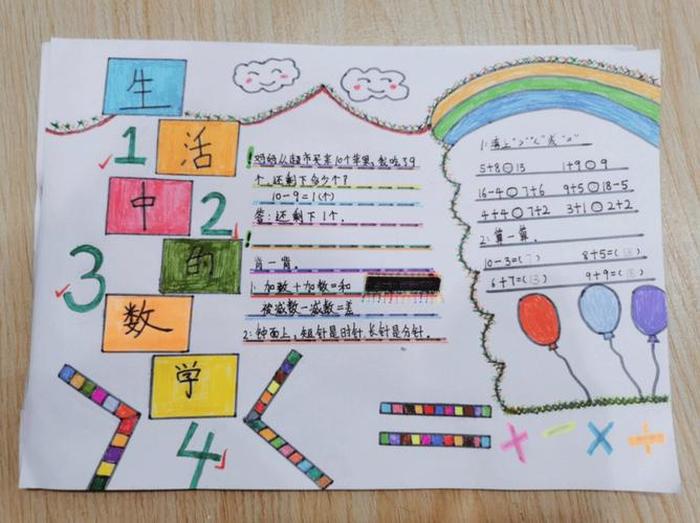 生
活
中
的
数
学
1
2
3
4
妈妈从超市买来10个苹果,我吃了9
个,还剩下多少个?
10-9=1(个)
答:还剩下1个。
背一背。
1:加数+加数=和
被减数-减数=差
2:钟面上,短针是时针,长针是分针。
1:填上">""<"或"="
5+8○13 1+9○9
16-4○7+6 9+5○18-5
4+4○7+2 3+1○2+2
2:算一算。
10-3=(7) 8+5=( )
6+7=(13) 9+9=(18)
+ - × ÷